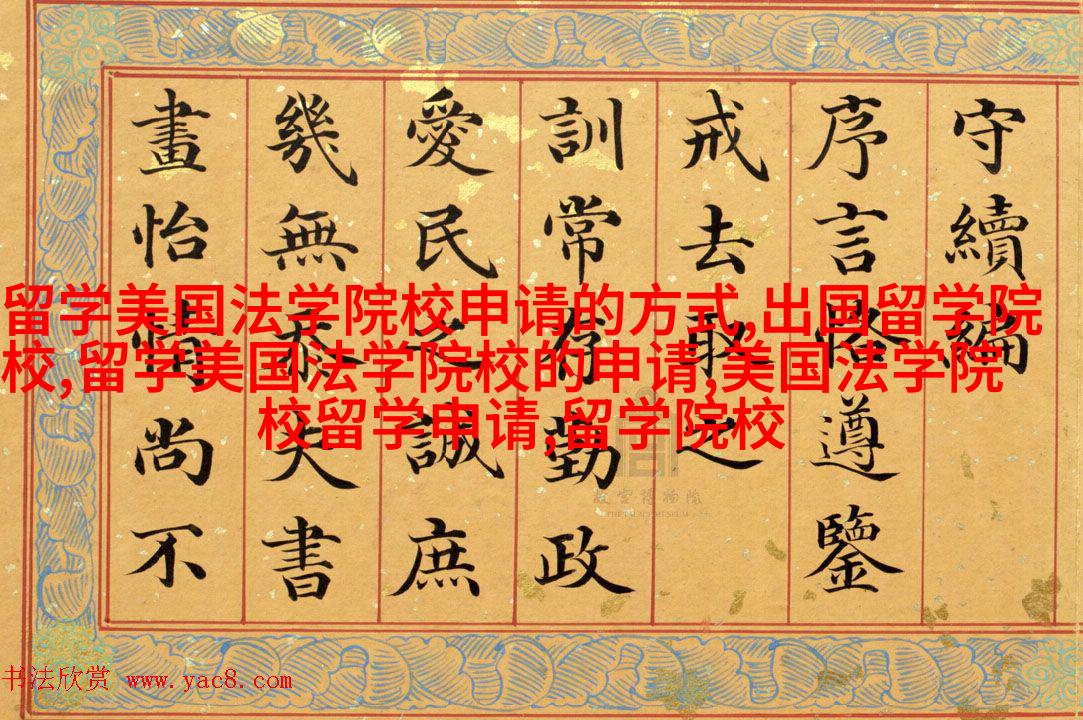 守續編
序言恪遵鑒
戒去耽之
訓常存勤政
愛民之誠庶
幾無忝夫書
畫怡情尚不
留学美国法学院校申请的方式,出国留学院
校,留学美国法学院校的申请,美国法学院
校留学申请,留学院校
故宫博物院
THE PALACE MUSEUM
书法欣赏 www.yac8.com